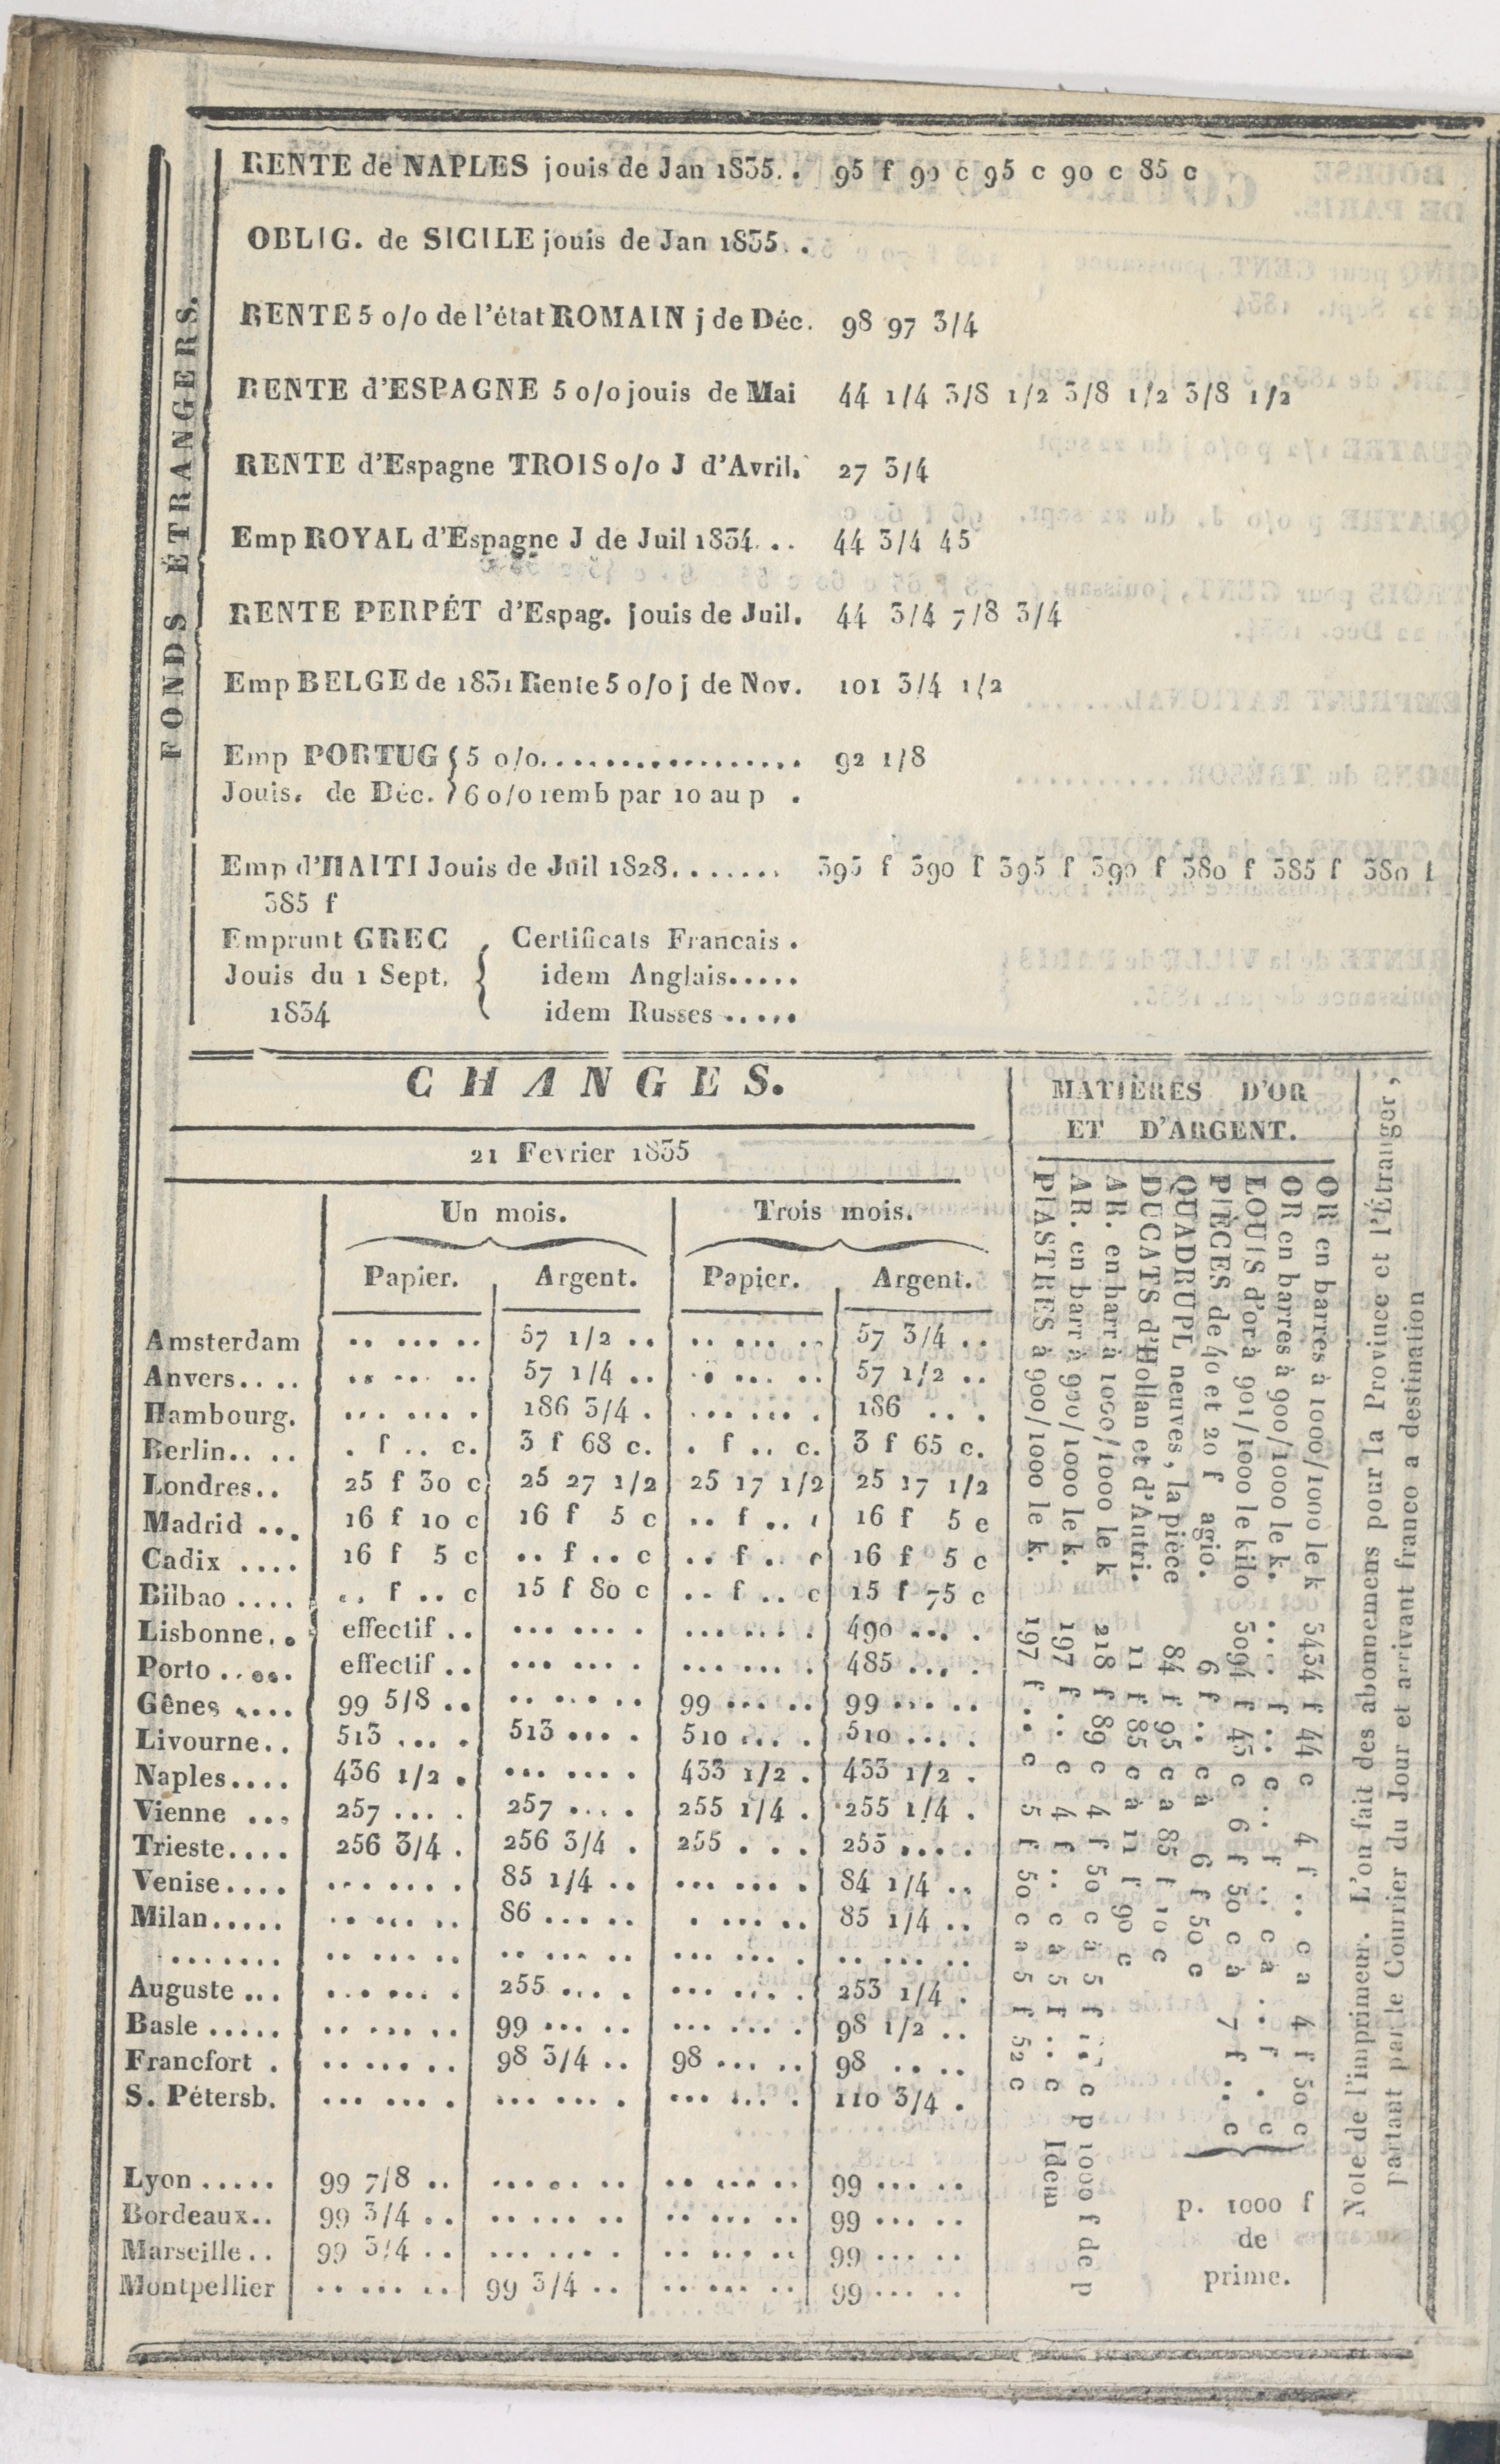 FONDS ÉTRANGERS.
RENTE de NAPLES jouis de Jan 1835. . 95 f 90 c 95 c 90 c 85 c
OBLIG. de SICILE jouis de Jan 1835. .
RENTE 5 o/o de l'état ROMAIN j de Déc. 98 97 3/4
RENTE d'ESPAGNE 5 o/o jouis de Mai 44 1/4 3/8 1/2 3/8 1/2 3/8 1/2
RENTE d'Espagne TROIS o/o J d'Avril. 27 3/4
Emp ROYAL d'Espagne J de Juil 1834. . . 44 3/4 45
RENTE PERPÉT d'Espag. jouis de Juil. 44 3/4 7/8 3/4
Emp BELGE de 1831 Rente 5 o/o j de Nov. 101 3/4 1/2
Emp PORTUG { 5 o/o.................. 92 1/8
Jouis. de Déc. } 6 o/o remb par 10 au p .
Emp d'HAITI Jouis de Juil 1828....... 395 f 390 f 395 f 390 f 380 f 385 f 380 f
385 f
Emprunt GREC { Certificats Francais .
Jouis du 1 Sept. idem Anglais.....
1834 idem Russes .....
CHANGES.
21 Fevrier 1835
Un mois. Trois mois.
Papier. Argent. Papier. Argent.
Amsterdam .. ... .. 57 1/2 .. .. ... .. 57 3/4 ..
Anvers.... .. ... .. 57 1/4 .. . ... .. 57 1/2 ..
Hambourg. ... ... . 186 3/4 . ... ... . 186 ... .
Berlin.. .. . f .. c. 3 f 68 c. . f .. c. 3 f 65 c.
Londres.. 25 f 30 c 25 27 1/2 25 17 1/2 25 17 1/2
Madrid ... 16 f 10 c 16 f 5 c .. f .. 16 f 5 c
Cadix .... 16 f 5 c .. f .. c .. f .. c 16 f 5 c
Bilbao .... .. f .. c 15 f 80 c .. f .. c 15 f 75 c
Lisbonne.. effectif .. ... ... . ... ... . 490 ... .
Porto ..... effectif .. ... ... . ... ... . 485 ... .
Gênes .... 99 5/8 .. .. ... .. 99 ... .. 99 ... ..
Livourne.. 513 ... . 513 ... . 510 ... . 510 ... .
Naples.... 436 1/2 . ... ... . 433 1/2 . 433 1/2 .
Vienne ... 257 ... . 257 ... . 255 1/4 . 255 1/4 .
Trieste.... 256 3/4 . 256 3/4 . 255 . . . 255 ... .
Venise.... ... ... . 85 1/4 .. ... ... . 84 1/4 ..
Milan..... .. ... .. 86 ... .. . ... .. 85 1/4 ..
....... .. ... .. .. ... .. ... ... . .. ... ..
Auguste ... ... ... . 255 ... . ... ... . 253 1/4 .
Basle ..... .. ... .. 99 ... .. ... ... . 98 1/2 ..
Francfort . .. ... .. 98 3/4 .. 98 ... .. 98 .. ..
S. Pétersb. ... ... . ... ... . ... ... . 110 3/4 .
Lyon ..... 99 7/8 .. ... ... .. .. ... .. 99 ... ..
Bordeaux.. 99 3/4 .. .. ... .. .. ... .. 99 ... ..
Marseille.. 99 3/4 .. ... ... . .. ... .. 99 ... ..
Montpellier .. ... .. 99 3/4 .. .. ... .. 99 ... ..
MATIÈRES D'OR
ET D'ARGENT.
OR en barres à 1000/1000 le k 3434 f 44 c 4 f .. c a 4 f 50 c
OR en barres à 900/1000 le k. .... f .. c .. f .. c à .. f . c
LOUIS d'or à 901/1000 le kilo 3094 f 45 c 6 f 50 c à 7 f .. c
PIÈCES de 40 et 20 f agio. 6 f .. c à 6 f 50 c
QUADRUPL neuves, la pièce 84 f 95 c a 85 f 10 c
DUCATS d'Hollan et d'Autri. 11 f 85 c à 11 f 90 c
AR. en barr à 1000/1000 le k 218 f 89 c 4 f 50 c à 5 f c p 1000 f de p
AR. en barr à 900/1000 le k. 197 f .. c 4 f .. c à 5 f .. c Idem
PIASTRES à 900/1000 le k. 197 f .. c 5 f 50 c a 5 f 52 c
p. 1000 f
de
prime.
Note de l'imprimeur. L'on fait des abonemens pour la Province et l'Étranger,
partant par le Courrier du Jour et arrivant franco a destination